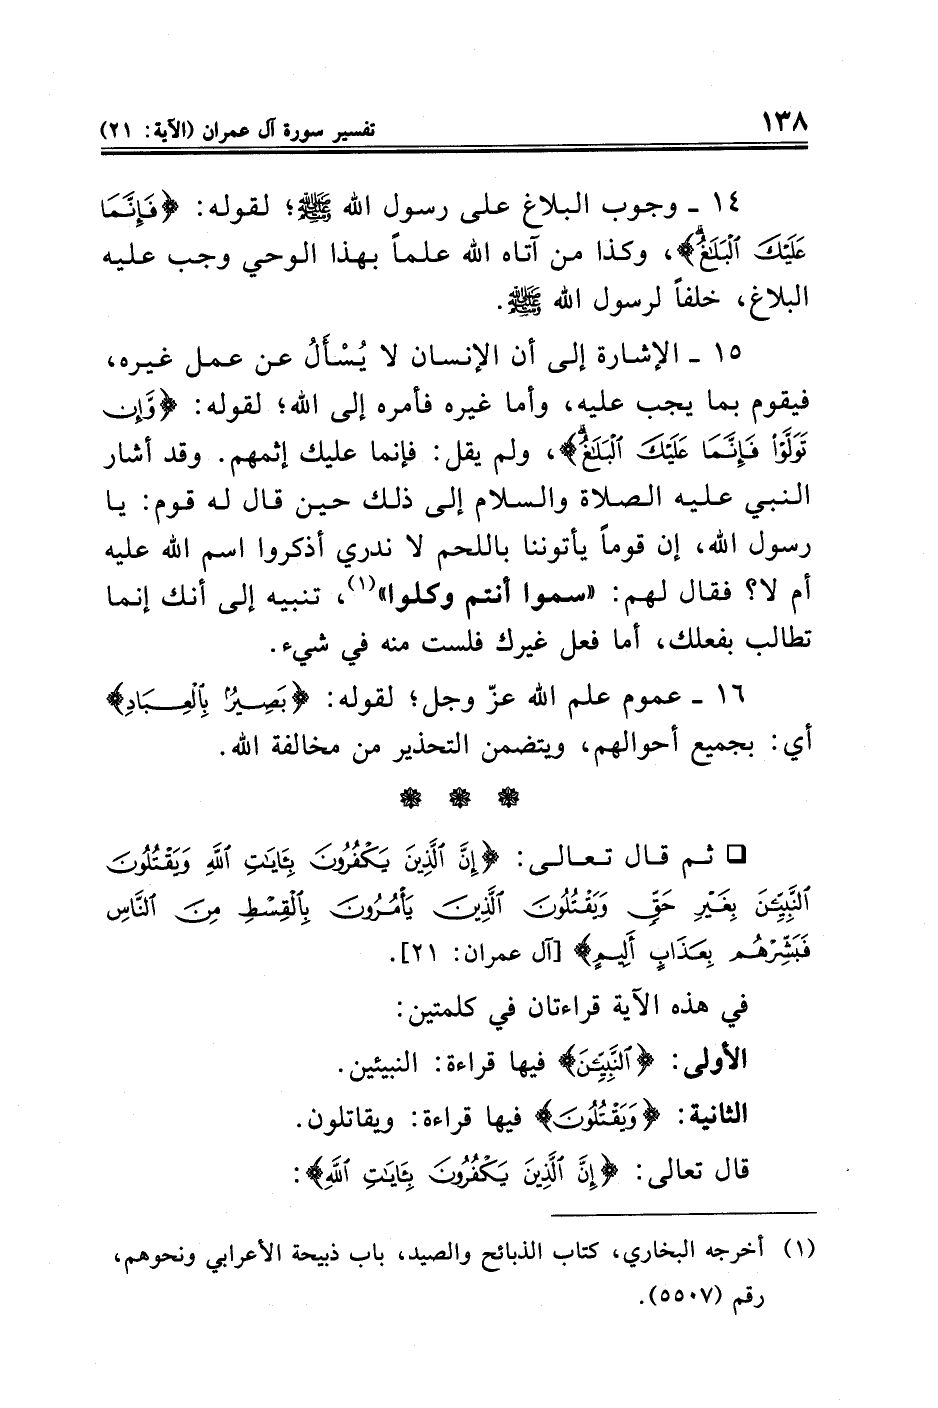 ١٣٨
تفسير سورة آل عمران (الآية: ٢١)
١٤ ـ وجوب البلاغ على رسول الله ﷺ؛ لقوله: ﴿فَإِنَّمَا
عَلَيْكَ ٱلْبَلَٰغُ﴾، وكذا من آتاه الله علماً بهذا الوحي وجب عليه
البلاغ، خلفاً لرسول الله ﷺ.
١٥ ـ الإشارة إلى أن الإنسان لا يُسْأَلُ عن عمل غيره،
فيقوم بما يجب عليه، وأما غيره فأمره إلى الله؛ لقوله: ﴿وَّإِن
تَوَلَّوْا۟ فَإِنَّمَا عَلَيْكَ ٱلْبَلَٰغُ﴾، ولم يقل: فإنما عليك إثمهم. وقد أشار
النبي عليه الصلاة والسلام إلى ذلك حين قال له قوم: يا
رسول الله، إن قوماً يأتوننا باللحم لا ندري أذكروا اسم الله عليه
أم لا؟ فقال لهم: «سموا أنتم وكلوا»(١)، تنبيه إلى أنك إنما
تطالب بفعلك، أما فعل غيرك فلست منه في شيء.
١٦ ـ عموم علم الله عزّ وجل؛ لقوله: ﴿بَصِيرٌۢ بِٱلْعِبَادِ﴾
أي: بجميع أحوالهم، ويتضمن التحذير من مخالفة الله.
❁ ❁ ❁
❑ ثم قال تعالى: ﴿إِنَّ ٱلَّذِينَ يَكْفُرُونَ بِـَٔايَٰتِ ٱللَّهِ وَيَقْتُلُونَ
ٱلنَّبِيِّـۧنَ بِغَيْرِ حَقٍّ وَيَقْتُلُونَ ٱلَّذِينَ يَأْمُرُونَ بِٱلْقِسْطِ مِنَ ٱلنَّاسِ
فَبَشِّرْهُم بِعَذَابٍ أَلِيمٍ﴾ [آل عمران: ٢١].
في هذه الآية قراءتان في كلمتين:
الأولى: ﴿ٱلنَّبِيِّـۧنَ﴾ فيها قراءة: النبيئين.
الثانية: ﴿وَيَقْتُلُونَ﴾ فيها قراءة: ويقاتلون.
قال تعالى: ﴿إِنَّ ٱلَّذِينَ يَكْفُرُونَ بِـَٔايَٰتِ ٱللَّهِ﴾:
(١) أخرجه البخاري، كتاب الذبائح والصيد، باب ذبيحة الأعرابي ونحوهم،
رقم (٥٥٠٧).